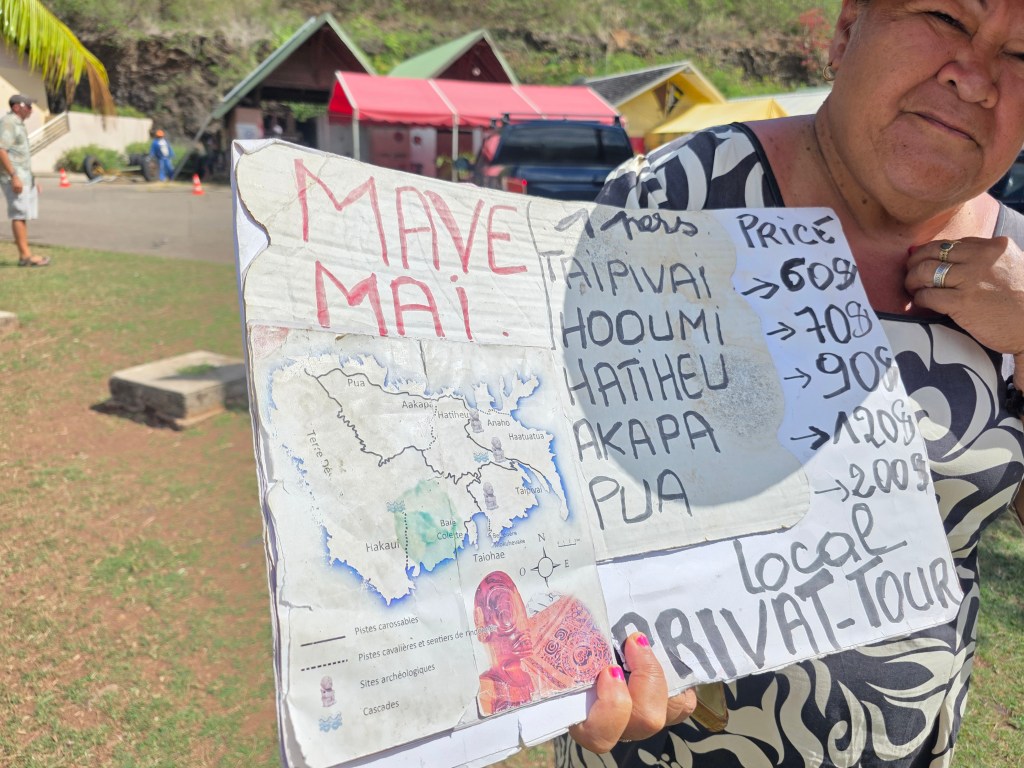 MAVE
MAi.
1 pers PRiCE
TAIPIVAi →60$
HOOUMI →70$
HATIHEU →90$
AKAPA →120$
PUA →200$
Local
PRIVAT-TOUR
Pua
Aakapa
Hatiheu
Anaho
Haatuatua
Taipivai
Hakaui
Baie
Colette
Taiohae
N
O E
S
Pistes carossables
Pistes cavalières et sentiers de
Sites archéologiques
Cascades